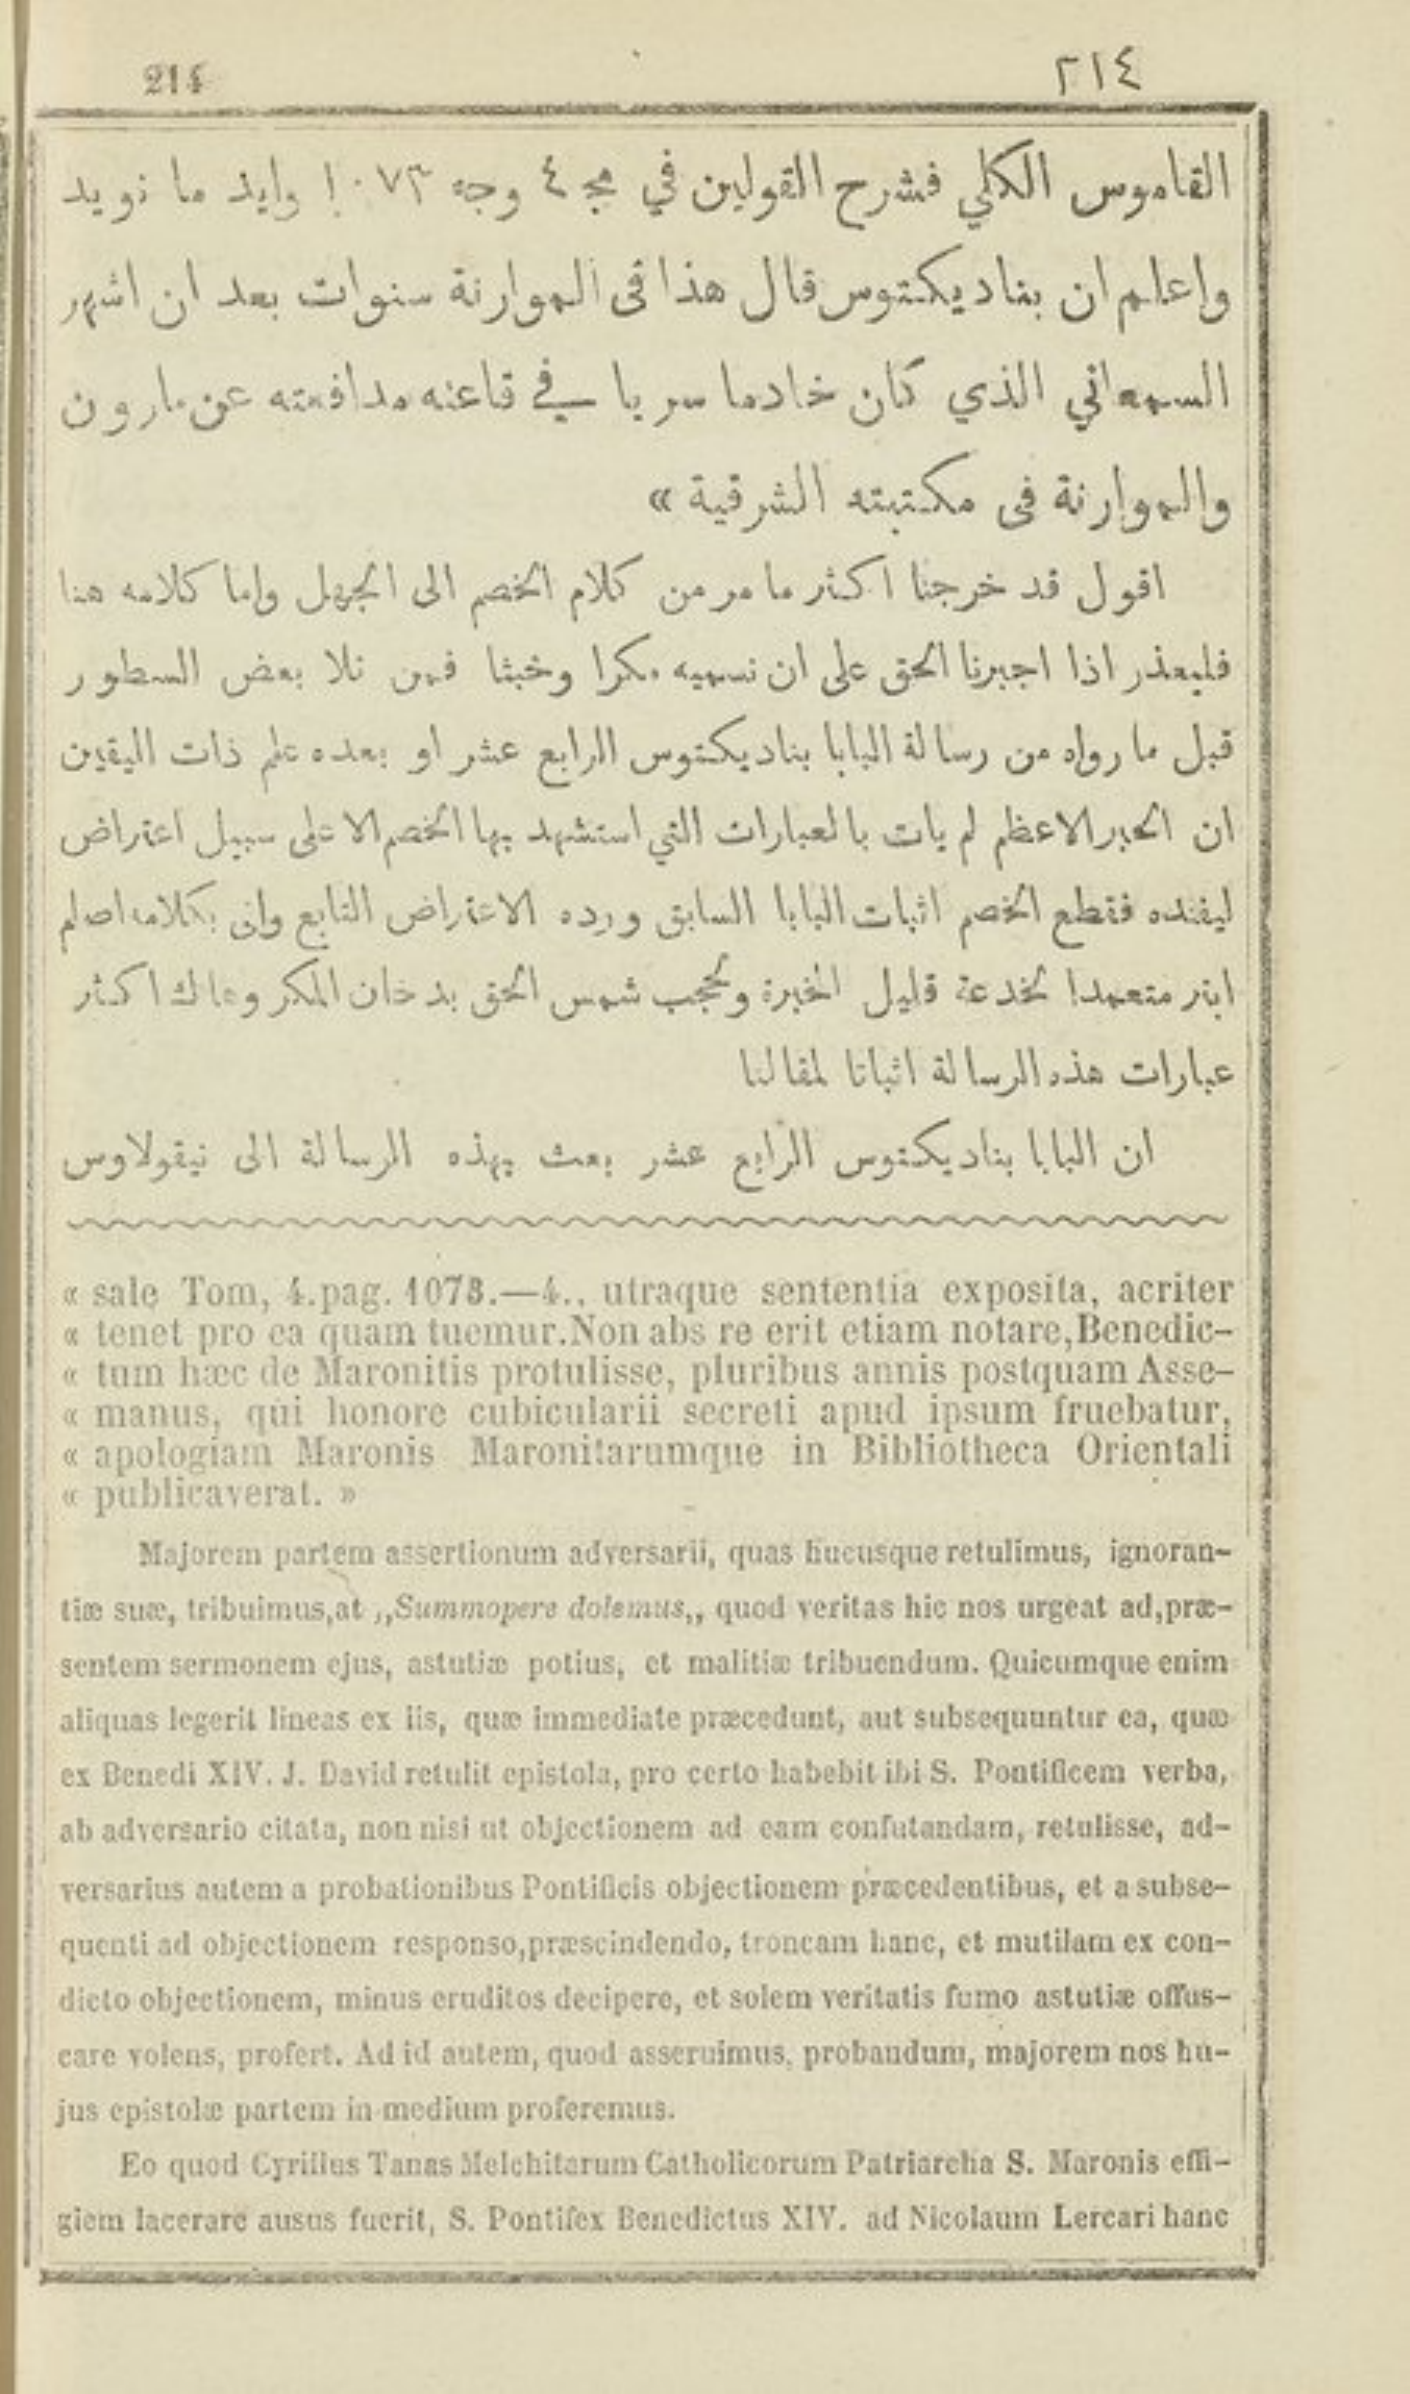 214
٢١٤
القاموس الكلي فشرح القولين في مج ٤ وجه ١٠٧٣ وايد ما نويد
واعلم ان بناديكتوس قال هذا في الموارنة سنوات بعد ان اشهر
السمعاني الذي كان خادما سريا في قاعته مدافعته عن مارون
والموارنة في مكتبته الشرقية »
اقول قد خرجنا اكثر ما مر من كلام الخصم الى الجهل واما كلامه هنا
فليعذر اذا اجبرنا الحق على ان نسميه مكرا وخبثا فمن تلا بعض السطور
قبل ما رواه من رسالة البابا بناديكتوس الرابع عشر او بعده علم ذات اليقين
ان الحبر الاعظم لم يات بالعبارات التي استشهد بها الخصم الا على سبيل اعتراض
ليفنده فقطع الخصم اثبات البابا السابق ورده الاعتراض التابع واتى بكلامه اصلم
ابتر متعمدا لخدعة قليل الخبرة ولحجب شمس الحق بدخان المكر وهاك اكثر
عبارات هذه الرسالة اثباتا لمقالنا
ان البابا بناديكتوس الرابع عشر بعث بهذه الرسالة الى نيقولاوس
« sale Tom, 4.pag. 1073.—4., utraque sententia exposita, acriter
« tenet pro ea quam tuemur.Non abs re erit etiam notare,Benedic-
« tum hæc de Maronitis protulisse, pluribus annis postquam Asse-
« manus, qui honore cubicularii secreti apud ipsum fruebatur,
« apologiam Maronis Maronitarumque in Bibliotheca Orientali
« publicaverat. »
Majorem partem assertionum adversarii, quas hucusque retulimus, ignoran-
tiæ suæ, tribuimus,at ,,Summopere dolemus,, quod veritas hic nos urgeat ad,præ-
sentem sermonem ejus, astutiæ potius, et malitiæ tribuendum. Quicumque enim
aliquas legerit lineas ex iis, quæ immediate præcedunt, aut subsequuntur ea, quæ
ex Benedi XIV. J. David retulit epistola, pro certo habebit ibi S. Pontificem verba,
ab adversario citata, non nisi ut objectionem ad eam confutandam, retulisse, ad-
versarius autem a probationibus Pontificis objectionem præcedentibus, et a subse-
quenti ad objectionem responso,præscindendo, troncam hanc, et mutilam ex con-
dicto objectionem, minus eruditos decipere, et solem veritatis fumo astutiæ offus-
care volens, profert. Ad id autem, quod asseruimus, probandum, majorem nos hu-
jus epistolæ partem in medium proferemus.
Eo quod Cyrillus Tanas Melchitarum Catholicorum Patriarcha S. Maronis effi-
giem lacerare ausus fuerit, S. Pontifex Benedictus XIV. ad Nicolaum Lercari hanc